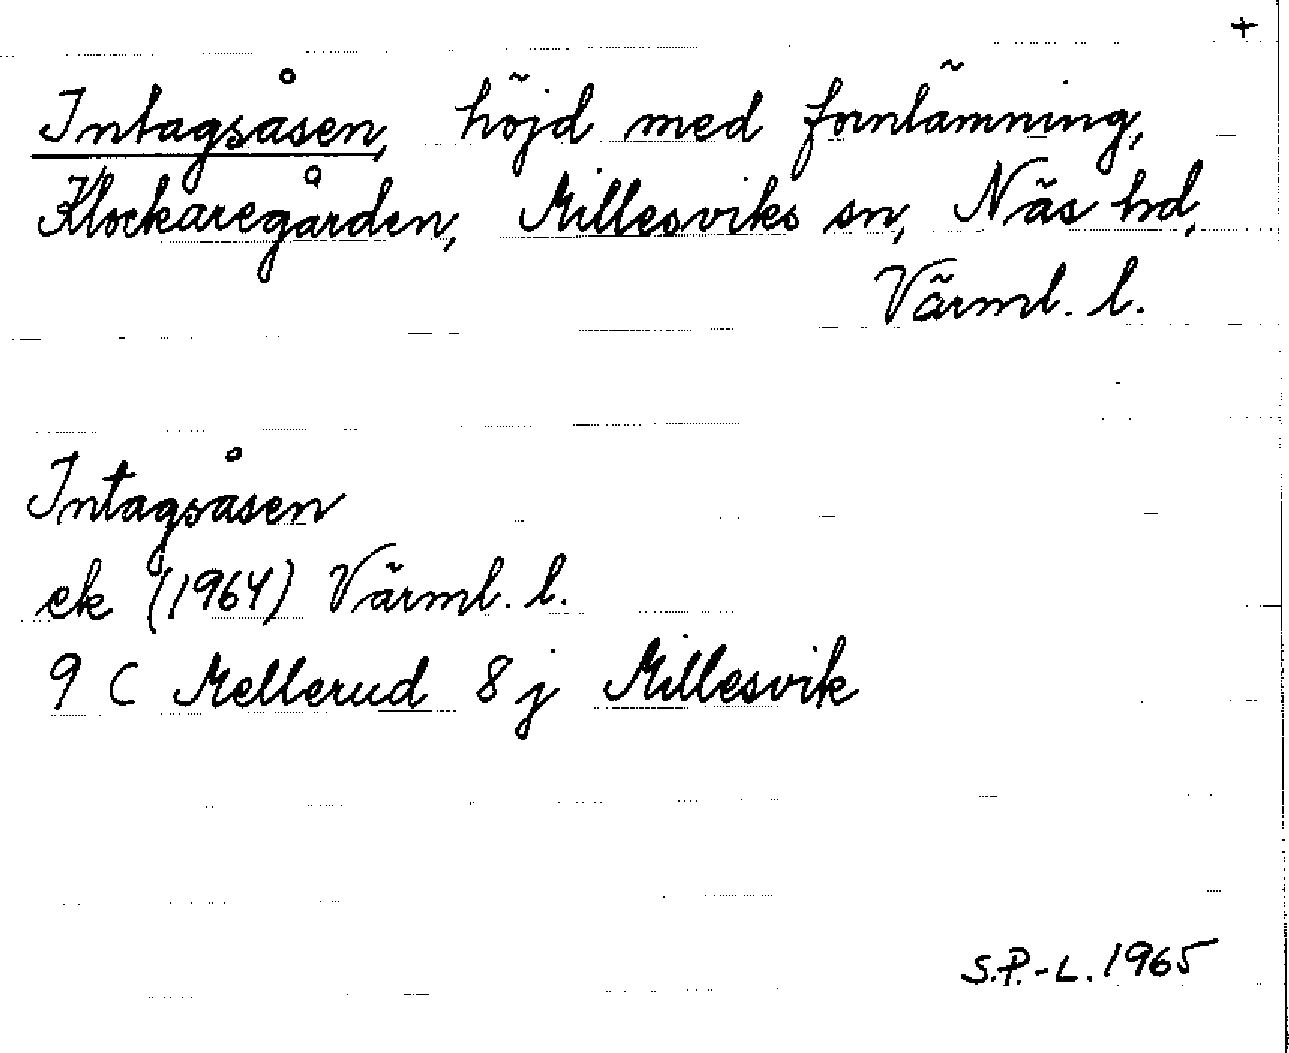 +
Intagsåsen, höjd med fornlämning,
Klockaregården, Millesviks sn, Näs hd,
Värml. l.
Intagsåsen
ek (1964) Värml. l.
9 C Mellerud 8 j Millesvik
S.P.-L. 1965